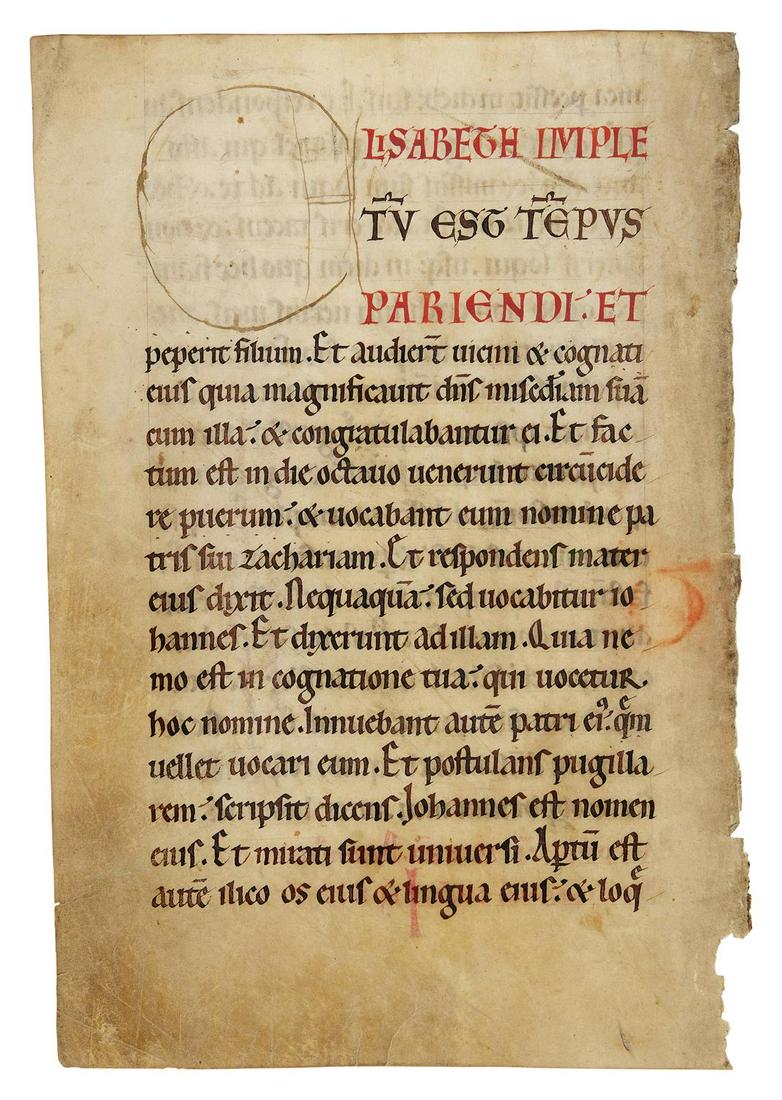 LISABETH IMPLE
TV̄ EST TĒPVS
PARIENDI. ET
peperit filium. Et audier̄t uicini & cognati
eius quia magnificauit dn̄s misc̄diam suā
cum illa. & congratulabantur ei. Et fac
tum est in die octauo uenerunt circūcide
re puerum. & uocabant eum nomine pa
tris sui zachariam. Et respondens mater
eius dixit. Nequaquā. sed uocabitur io
hannes. Et dixerunt ad illam. Quia ne
mo est in cognatione tua. qui uocetur
hoc nomine. Innuebant autē patri eiꝰ. quͤm
uellet uocari eum. Et postulans pugilla
rem. scripsit dicens. Johannes est nomen
eius. Et mirati sunt uniuersi. Aptū est
autē ilico os eius & lingua eius. & loqͤ